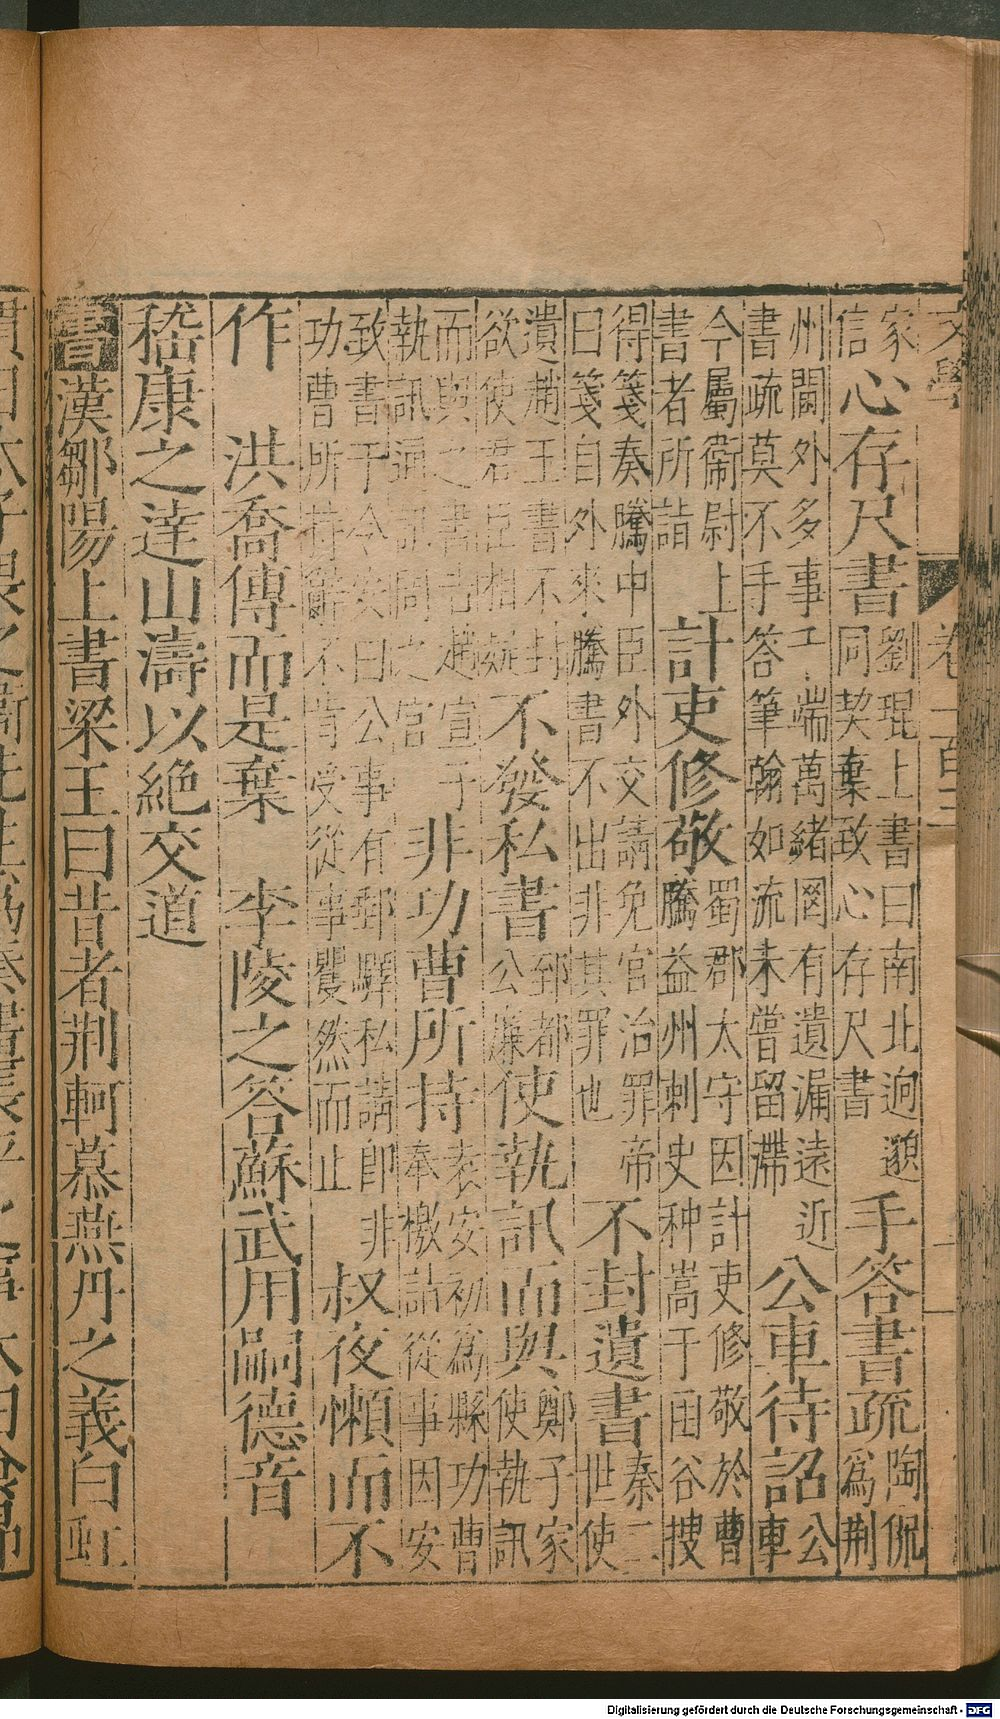 文學 卷一百三
家信心存尺書劉琨上書曰南北迥邈同契棄致心存尺書手答書疏陶侃爲荆
州閫外多事千端萬緒罔有遺漏遠近書疏莫不手答筆翰如流未嘗留滯公車待詔公車
今屬衞尉上書者所詣計吏修敬蜀郡太守因計吏修敬於曹騰益州刺史种嵩于函谷搜
得箋奏騰中臣外交請免官治罪帝曰箋自外來騰書不出非其罪也不封遺書秦二世使
遺趙王書不封欲使君臣相疑不發私書郅都公廉使執訊而與鄭子家使執訊
而與之書告趙宣子執訊通訊問之官非功曹所持袁安初爲縣功曹奉檄詣從事因安
致書于令安曰公事有郵驛私請卽非功曹所持辭不肯受從事矍然而止叔夜懶而不
作 洪喬傳而是棄 李陵之答蘇武用嗣德音
嵇康之達山濤以絕交道
書漢鄒陽上書梁王曰昔者荆軻慕燕丹之義白虹
Digitalisierung gefördert durch die Deutsche Forschungsgemeinschaft - DFG